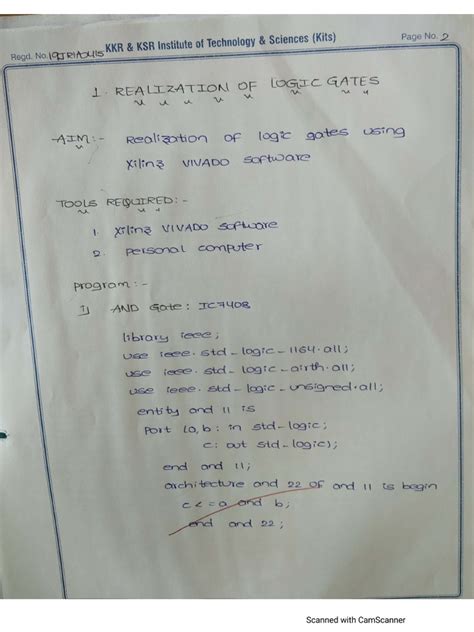 Regd. No. 19JR1A0415 KKR & KSR Institute of Technology & Sciences (Kits) Page No. 2
1. REALIZATION OF LOGIC GATES
AIM:- Realization of logic gates using
Xilinz VIVADO software
TOOLS REQUIRED:-
1. Xilinz VIVADO software
2. personal computer
program:-
1) AND Gate: IC7408
library ieee;
use ieee.std_logic_1164.all;
use ieee.std_logic_airth.all;
use ieee.std_logic_unsigned.all;
entity and 11 is
Port (a,b: in std_logic;
c: out std_logic);
end and 11;
architecture and 22 of and 11 is begin
c<=a and b;
end and 22;
Scanned with CamScanner